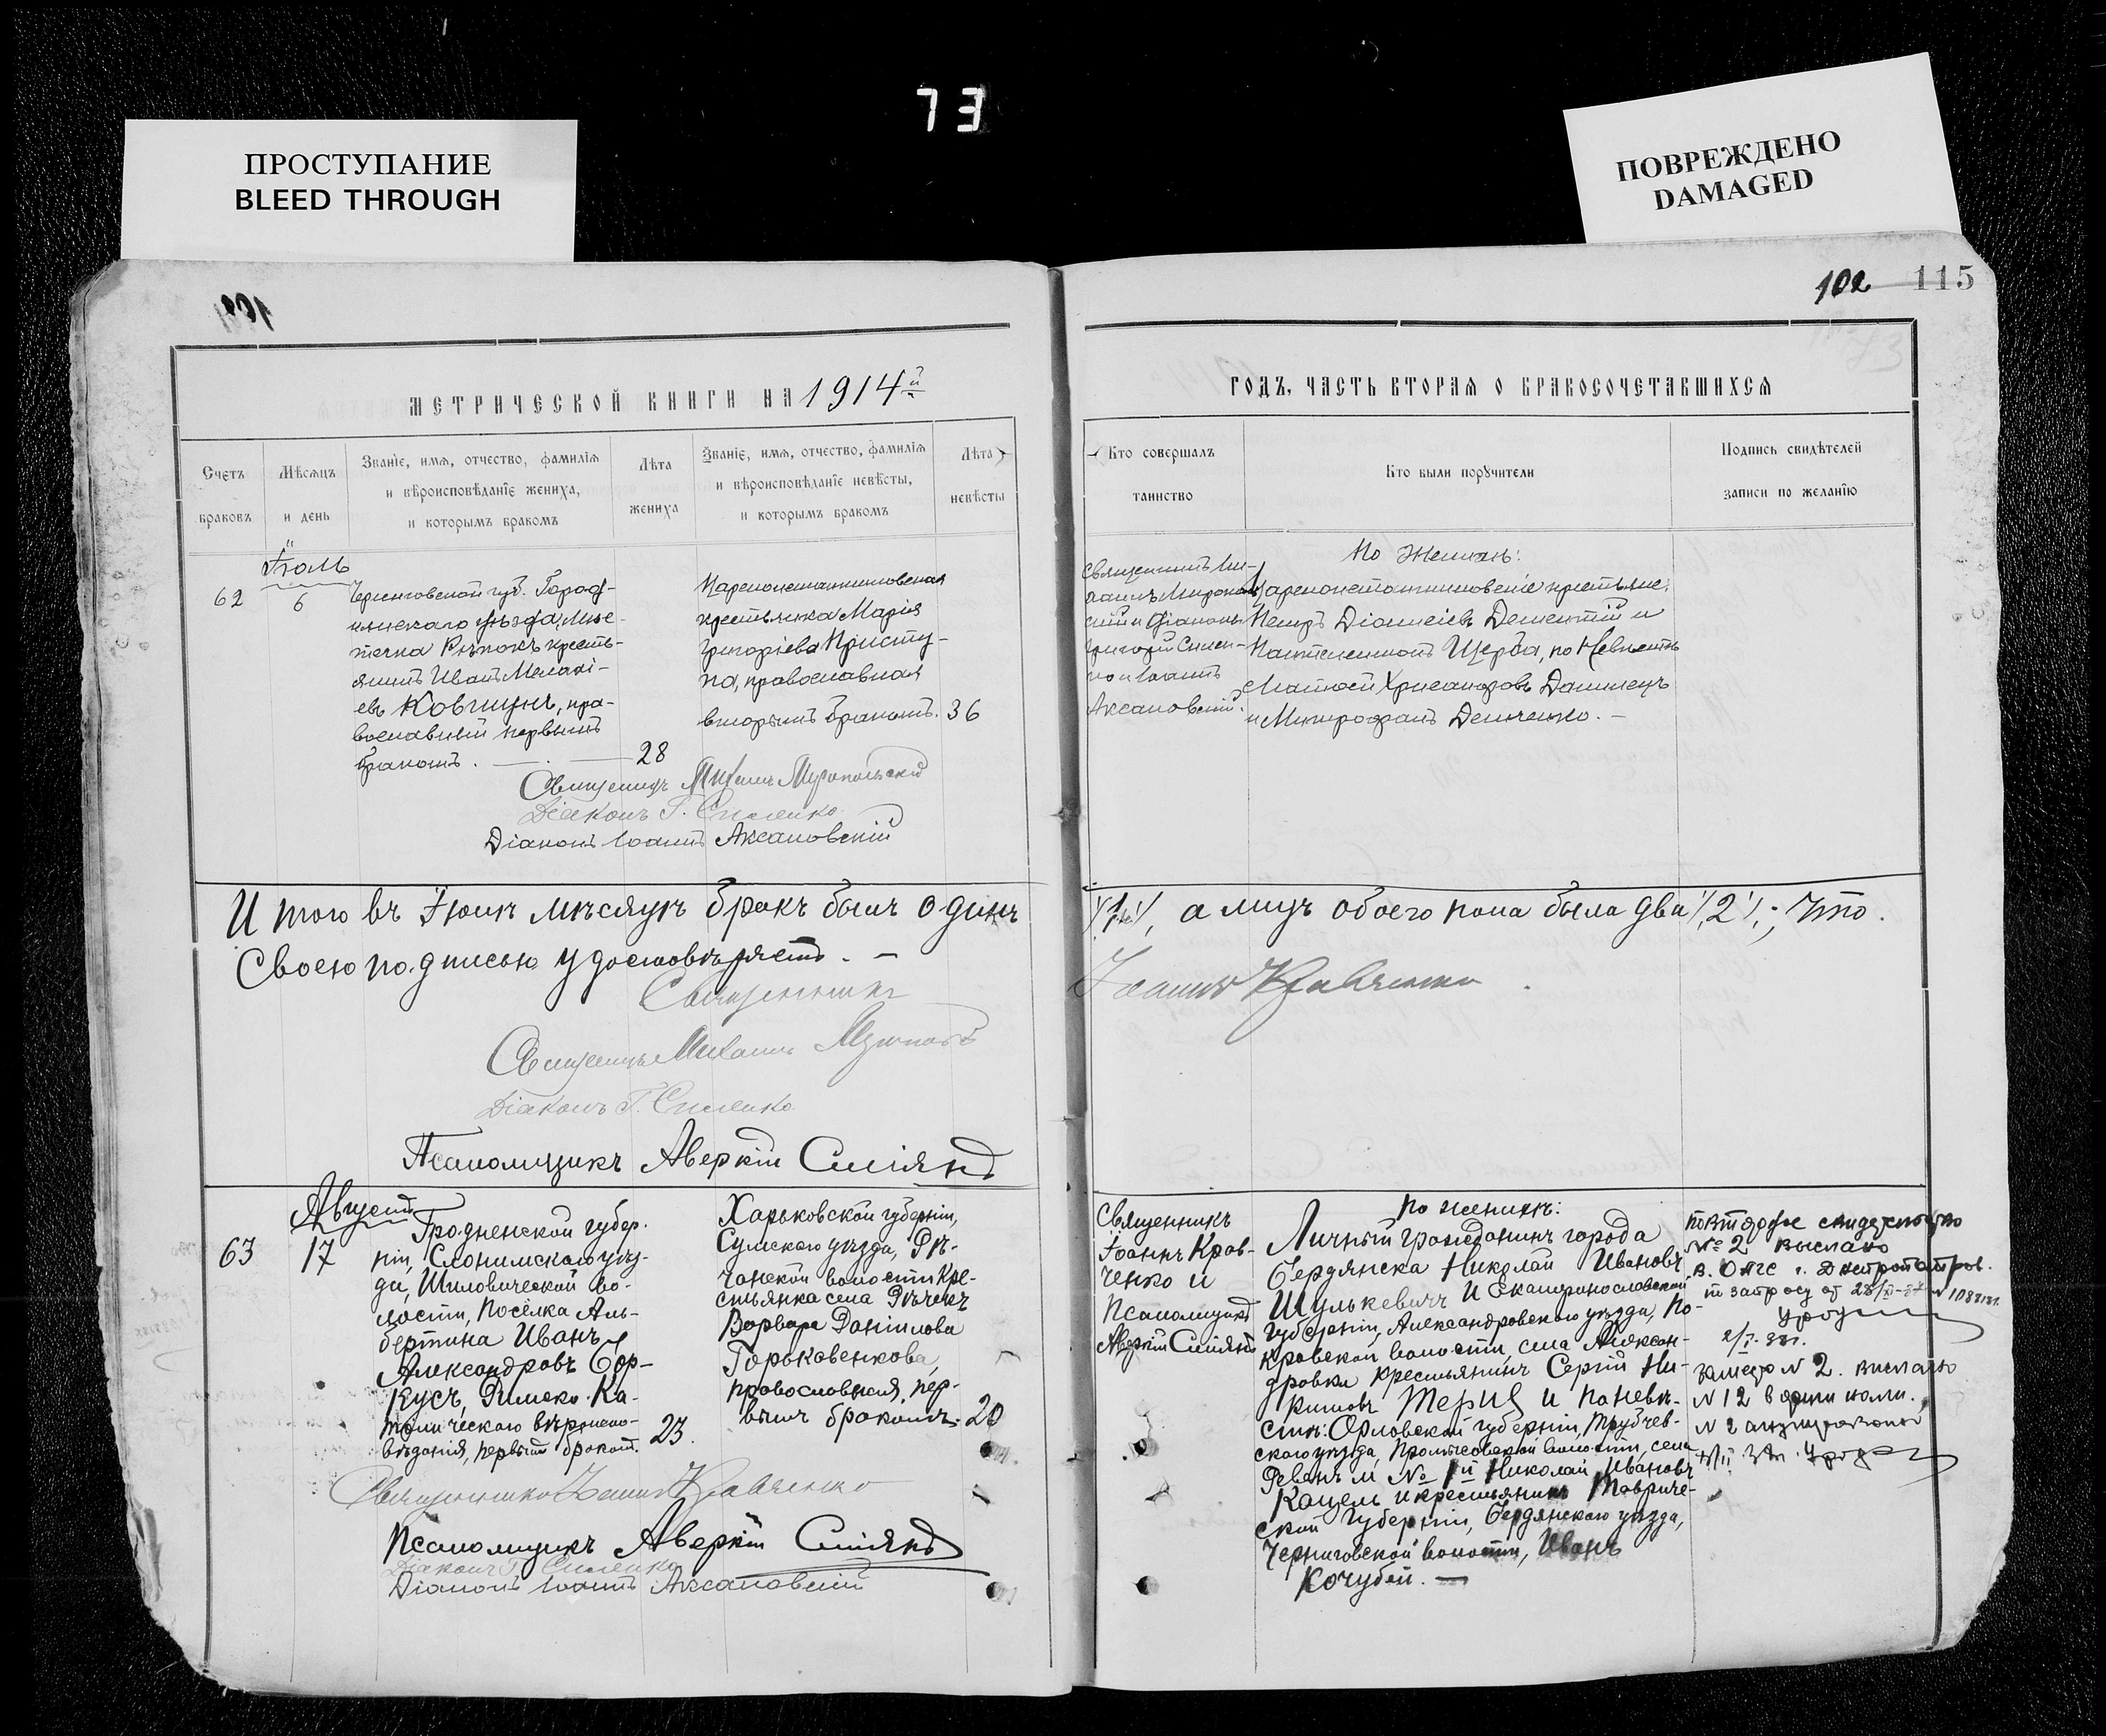 73
ПРОСТУПАНИЕ
BLEED THROUGH
ПОВРЕЖДЕНО
DAMAGED
102 115
МЕТРИЧЕСКОЙ КНИГИ НА 1914й
ГОДЪ, ЧАСТЬ ВТОРАЯ О БРАКОСОЧЕТАВШИХСЯ
Счетъ
браковъ
Мѣсяцъ
и день
Званіе, имя, отчество, фамилія
и вѣроисповѣданіе жениха,
и которымъ бракомъ
Лѣта
жениха
Званіе, имя, отчество, фамилія
и вѣроисповѣданіе невѣсты,
и которымъ бракомъ
Лѣта
невѣсты
Кто совершалъ
таинство
Кто были поручители
Подпись свидѣтелей
записи по желанію
62
6
Черниговской губ. Город-
нянскаго уѣзда, Мѣс-
течка Рѣпокъ кресть-
янинъ Иванъ
евъ Ковгунъ, пра-
вославный первымъ
бракомъ. — . — 28
Цареконстантиновская
крестьянка Марія
Григоріева Присту-
па, православная
вторымъ бракомъ. 36
Священникъ Ми-
хаилъ
и Діаконы
Григорій Силенко
и Іоаннъ
Аксановскій.
По жениху:
Цареконстантиновскіе крестьяне:
Петръ Діонисіевъ Дементій и
Пантелеимонъ Щерба, по Невѣстѣ
Хрисанфовъ Данилецъ
и Митрофанъ Демченко. —
Священникъ Михаилъ
Діаконъ Г. Силенко
Діаконъ Іоаннъ Аксановскій
Итого въ Іюлѣ мѣсяцѣ бракъ былъ одинъ
/1/, а лицъ обоего пола было два /2/; Что.
Своею подписью удостовѣряетъ. —
Священникъ
Іоаннъ Кравченко.
Священникъ Михаилъ
Діаконъ Г. Силенко
Псаломщикъ Аверкій Сміянъ
Августъ
63
17
Гродненской губер-
ніи, Слонимскаго уѣз-
да, Шиловической Во-
лости, посёлка Аль-
бертина Иванъ
Александровъ Бор-
кусъ, Римско-Ка-
толическаго вѣроиспо-
вѣданія, первымъ бракомъ. 23.
Харьковской губерніи,
Сумскаго уѣзда, Рѣ-
чанской волости кре-
стьянка села Рѣчекъ
Варвара Даніилова
Горьковенкова,
православная, пер-
вымъ бракомъ. 20
Священникъ
Іоаннъ Крав-
ченко и
Псаломщикъ
Аверкій Сміянъ
по жениху:
Личный гражданинъ города
Бердянска Николай Ивановъ
Шулькевичъ и Екатеринославской
губерніи, Александровскаго уѣзда, По-
кровской волости, села Алексан-
дровки крестьянинъ Сергій Ни-
китовъ и по невѣ-
стѣ: Орловской губерніи, Трубчев-
скаго уѣзда, волости, села
Ревенъ № 1й Николай Ивановъ
Кацель и крестьянинъ Тавриче-
ской губерніи, Бердянскаго уѣзда,
Черниговской волости, Иванъ
Кочубей. —
повторное свидетельство
№ 2 выслано
в ОАГС г. Днепропетров.
вместо № 2. выслано
№ 12
№ 2 аннулирован
Священникъ Іоаннъ Кравченко
Псаломщикъ Аверкій Сміянъ
Діаконъ Г. Силенко
Діаконъ Іоаннъ Аксановскій